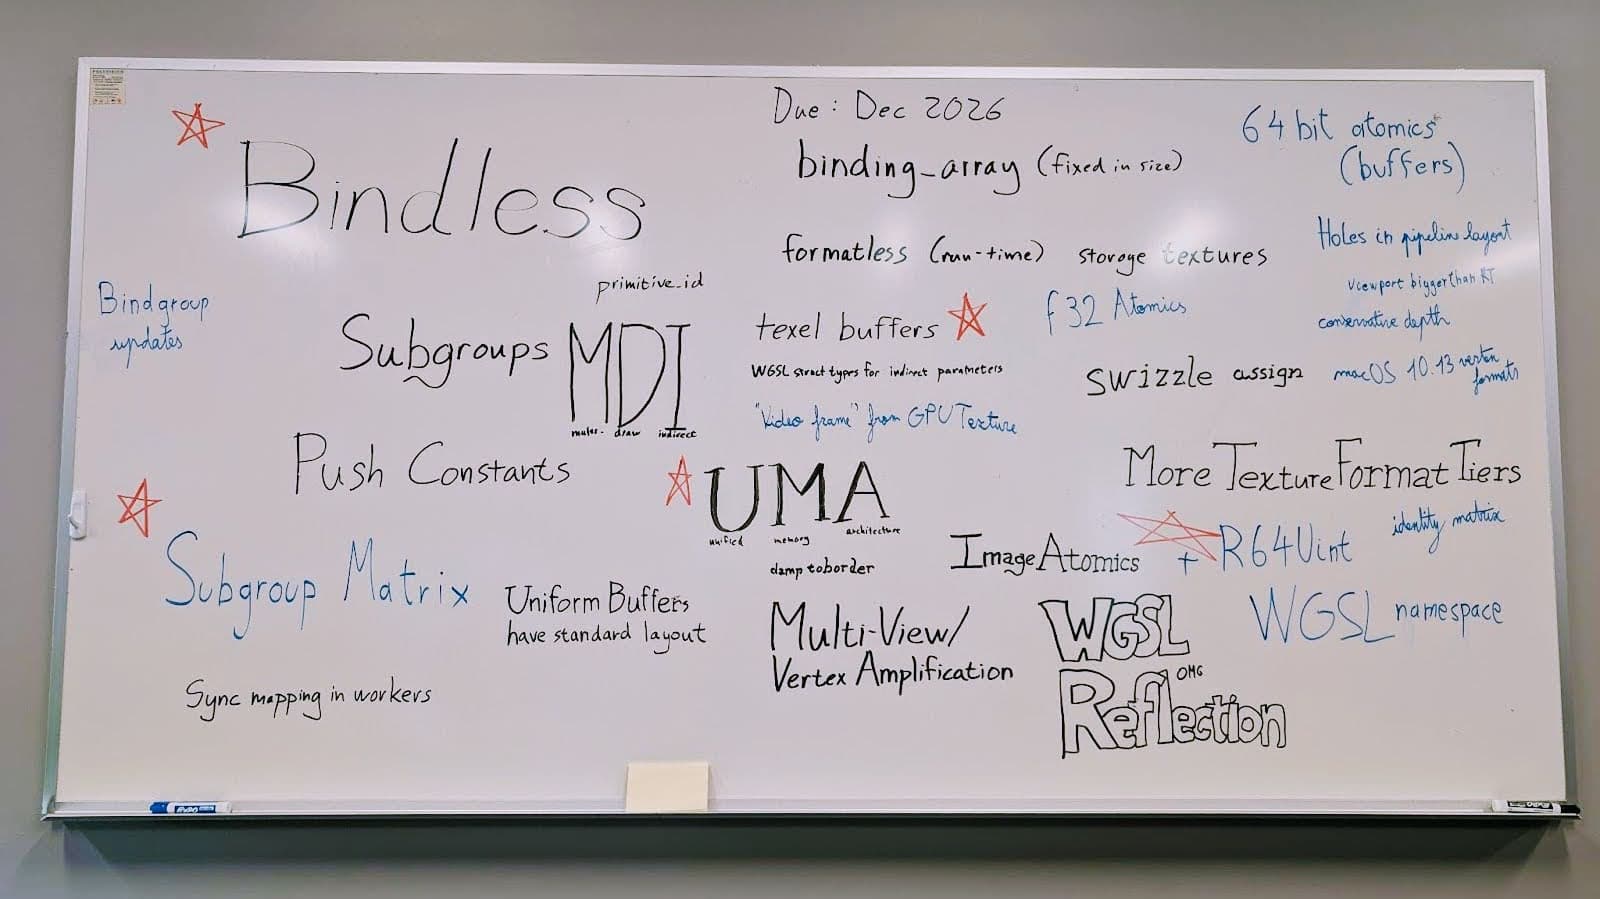 Due : Dec 2026
64 bit atomics
(buffers)
Bindless
binding_array (fixed in size)
formatless (run-time) storage textures
Holes in pipeline layout
viewport bigger than RT
primitive_id
Bindgroup
updates
texel buffers
f32 Atomics
conservative depth
Subgroups
MDI
multi- draw indirect
WGSL struct types for indirect parameters
swizzle assign
macOS 10.13 vertex
formats
"Video frame" from GPUTexture
Push Constants
UMA
unified memory architecture
More Texture Format Tiers
identity matrix
Image Atomics + R64Uint
Subgroup Matrix
clamp to border
Uniform Buffers
have standard layout
Multi-View/
Vertex Amplification
WGSL
OMG
Reflection
WGSL namespace
Sync mapping in workers
EXPO
EXPO